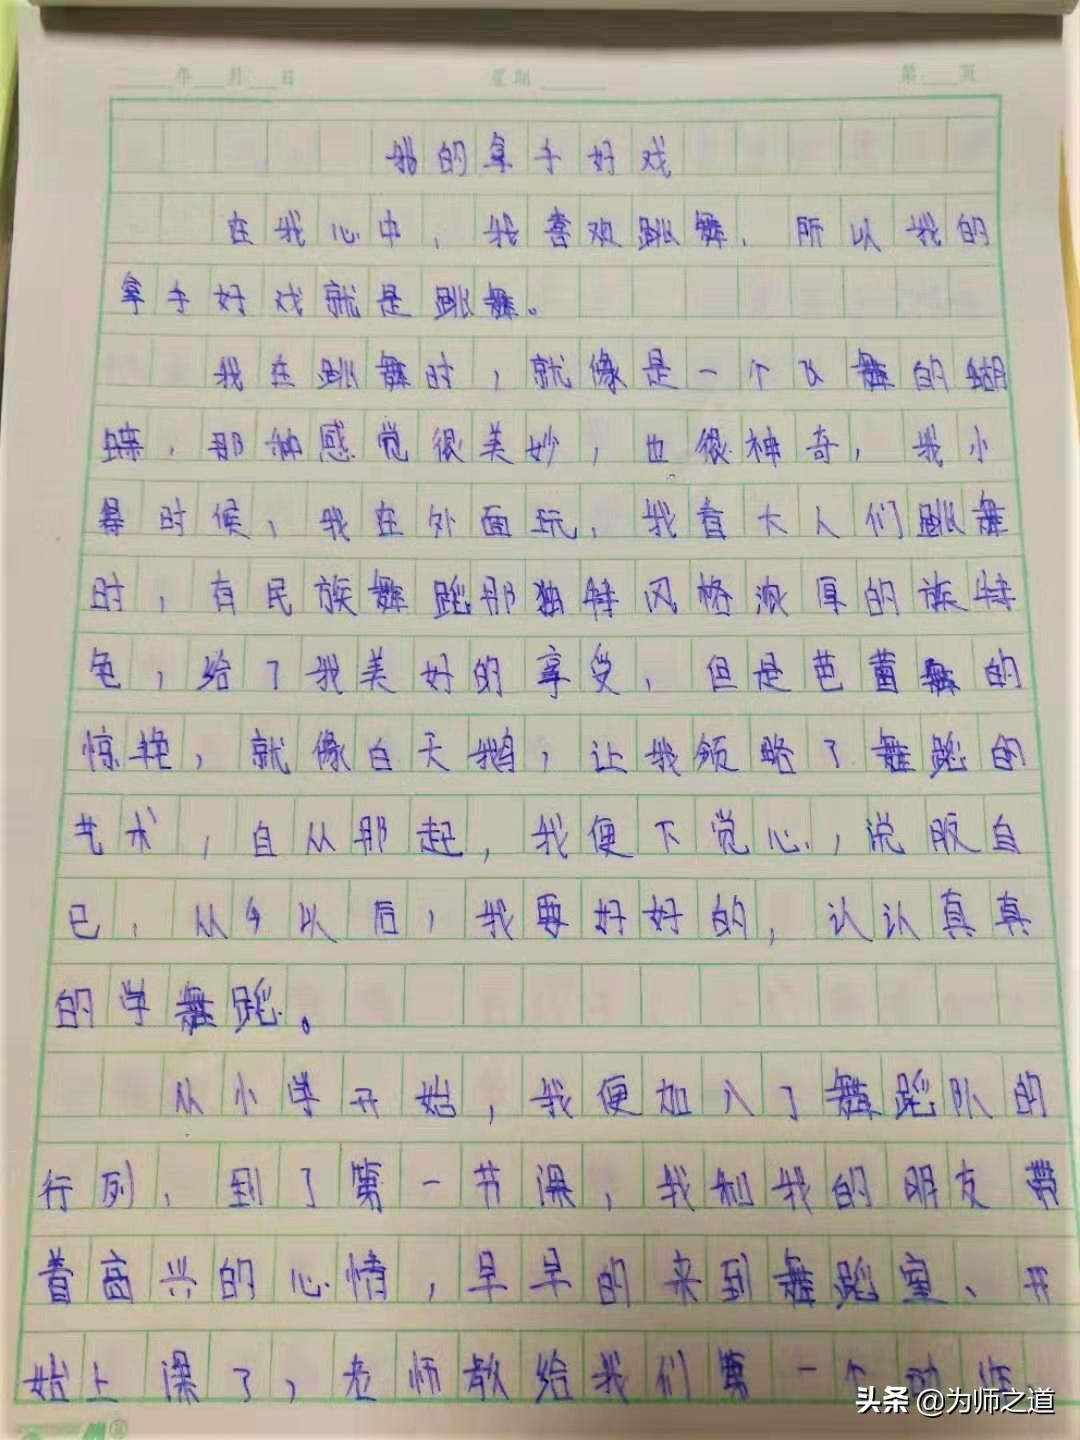 年 月 日 星期 第 页
我的拿手好戏
在我心中，我喜欢跳舞，所以我的
拿手好戏就是跳舞。
我在跳舞时，就像是一个飞舞的蝴
蝶，那种感觉很美妙，也很神奇，我小
时候，我在外面玩，我看大人们跳舞
时，有民族舞蹈那独特风格浓厚的族特
色，给了我美好的享受，但是芭蕾舞的
惊艳，就像白天鹅，让我领略了舞蹈的
艺术，自从那起，我便下觉心，说服自
已，从今以后，我要好好的，认认真真
的学舞蹈。
从小学开始，我便加入了舞蹈队的
行列，到了第一节课，我和我的朋友带
着高兴的心情，早早的来到舞蹈室、开
始上课了，老师教给我们第一个动作，
头条@为师之道